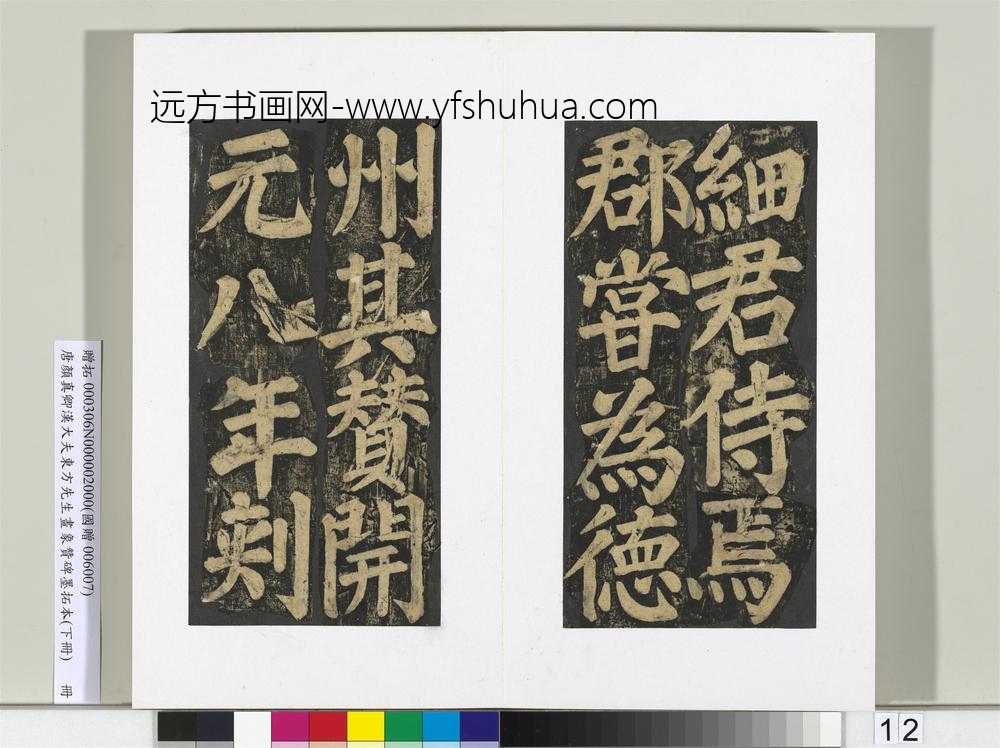 远方书画网-www.yfshuhua.com
細君侍焉
郡甞為德
州其贊開
元八年刻
贈拓 000306N000002000(國贈 006007)
唐顏真卿漢大夫東方先生畫象贊碑墨拓本(下冊) 冊
12